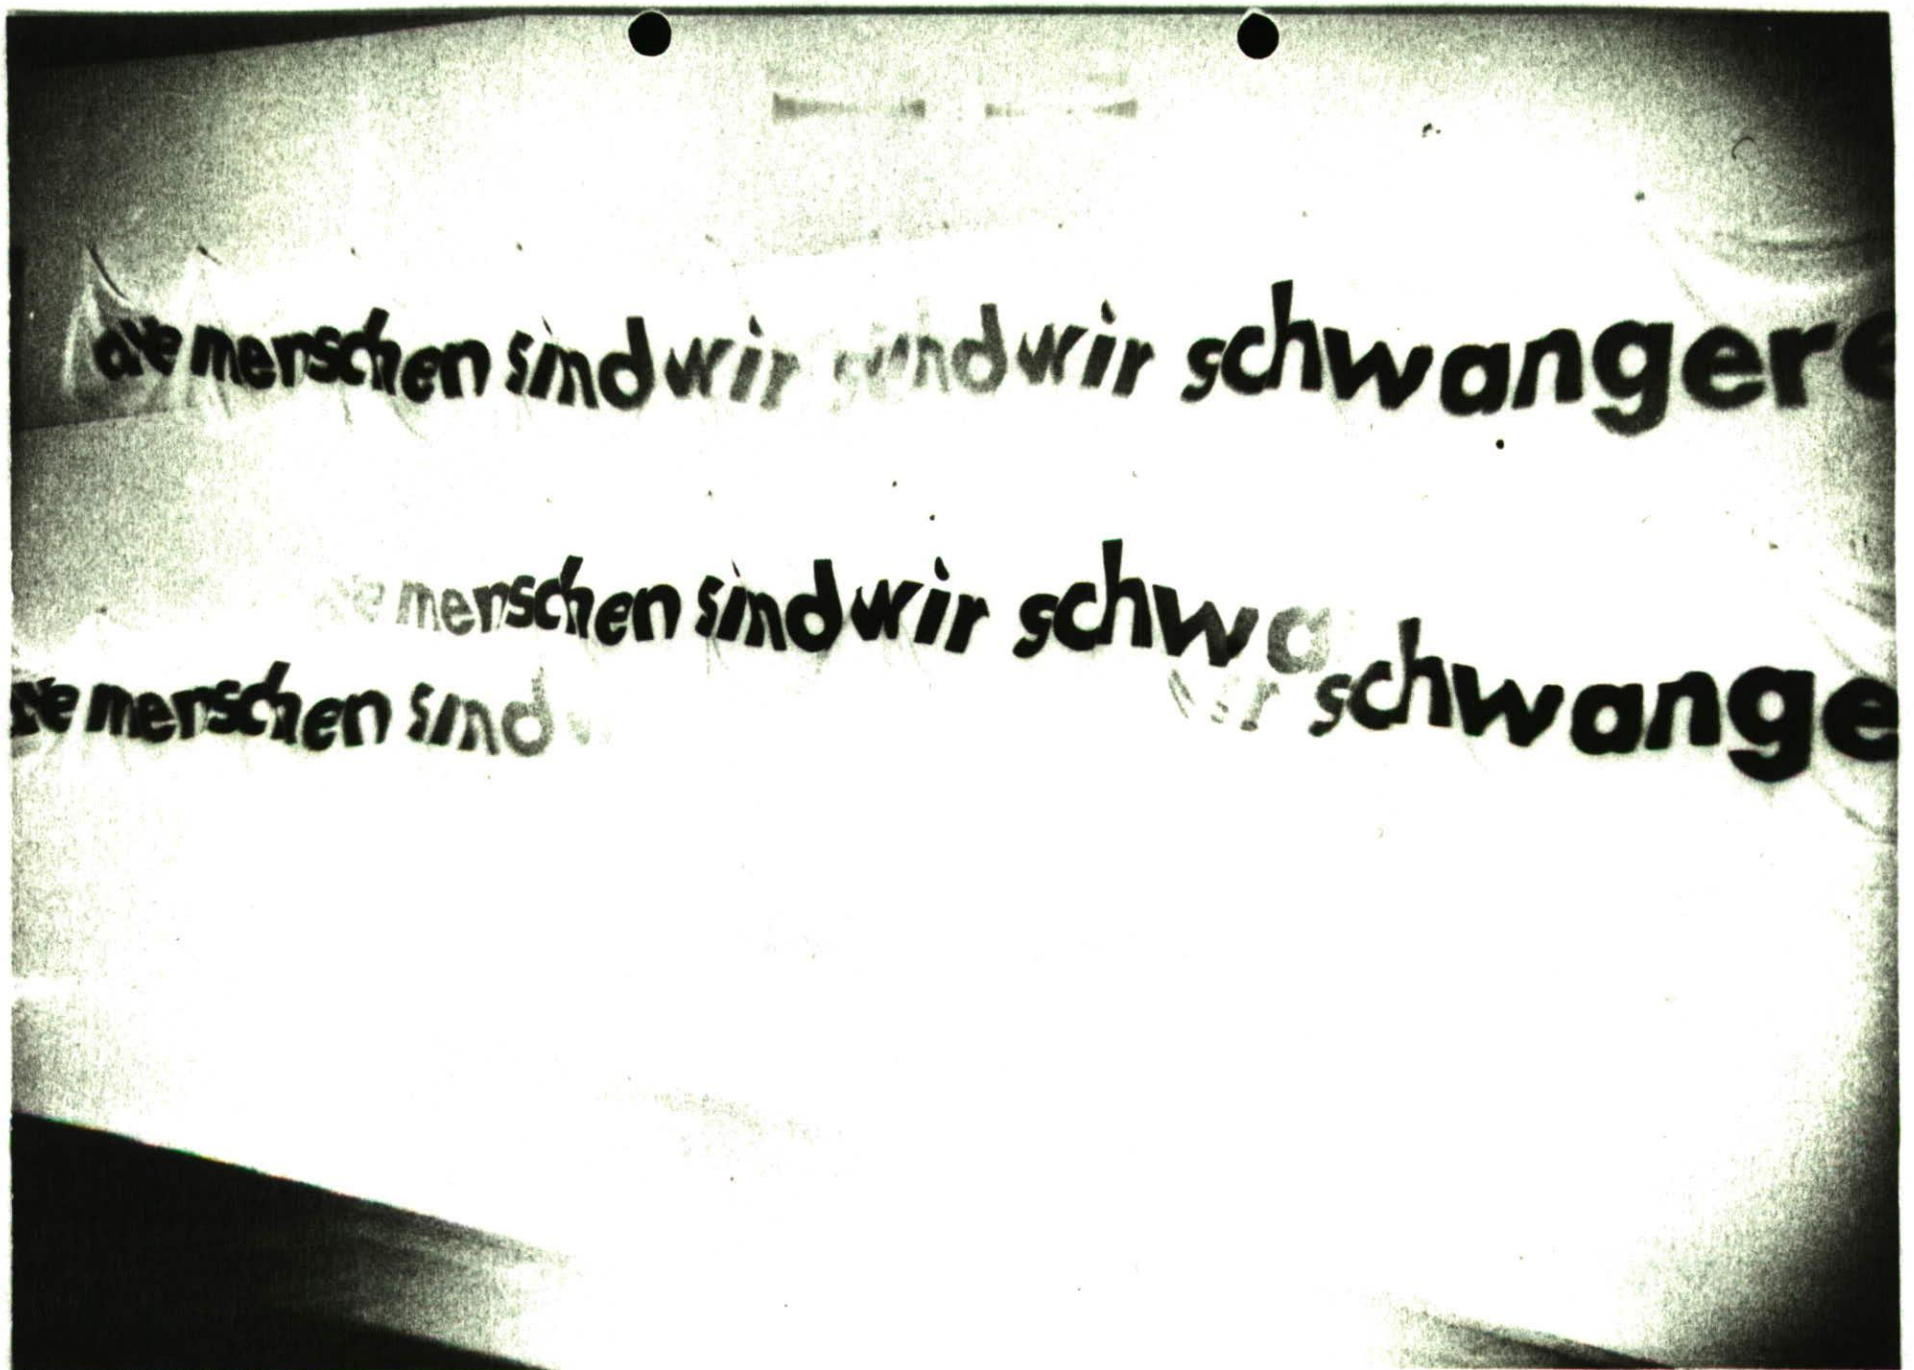 alle menschen sind wir sind wir schwangere
menschen sind wir schwa
menschen sind wir schwange